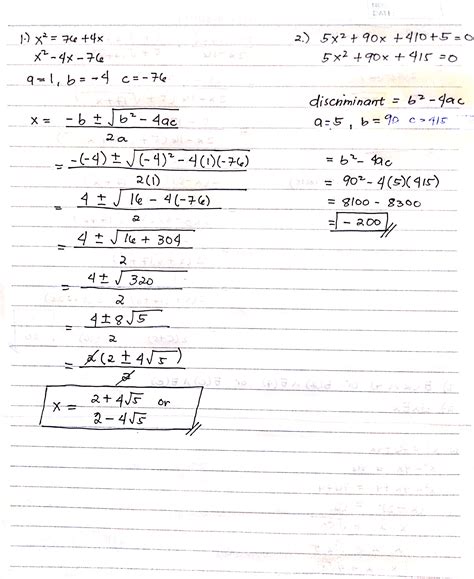 1.) x² = 76 + 4x
x² - 4x - 76
a = 1, b = -4 c = -76
x = -b ± √b² - 4ac
2a
= -(-4) ± √(-4)² - 4(1)(-76)
2(1)
= 4 ± √16 - 4(-76)
2
= 4 ± √16 + 304
2
= 4 ± √320
2
= 4 ± 8√5
2
= 2(2 ± 4√5)
2
x = 2 + 4√5 or
2 - 4√5
2.) 5x² + 90x + 410 + 5 = 0
5x² + 90x + 415 = 0
discriminant = b² - 4ac
a = 5, b = 90 c = 415
= b² - 4ac
= 90² - 4(5)(415)
= 8100 - 8300
= -200